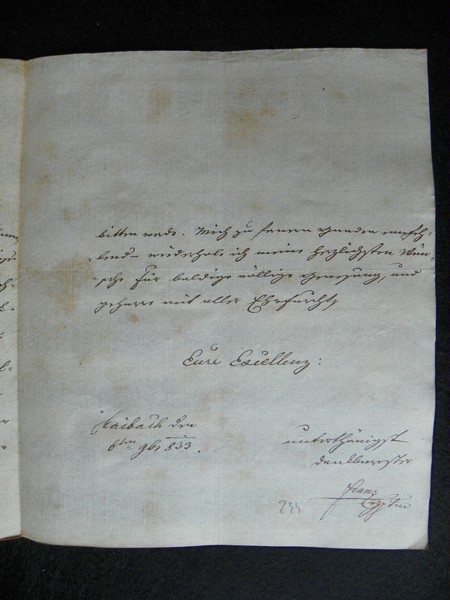 bitten werde. Mich zu fernern Gnaden empfeh-
lend – wiederhole ich meine herzlichsten Wün-
sche für baldige völlige Genesung, und
geharre mit aller Ehrfurcht
Eure Excellenz:
Laibach den
6ten 9br 833.
unterthänigst
dankbarster
Franz